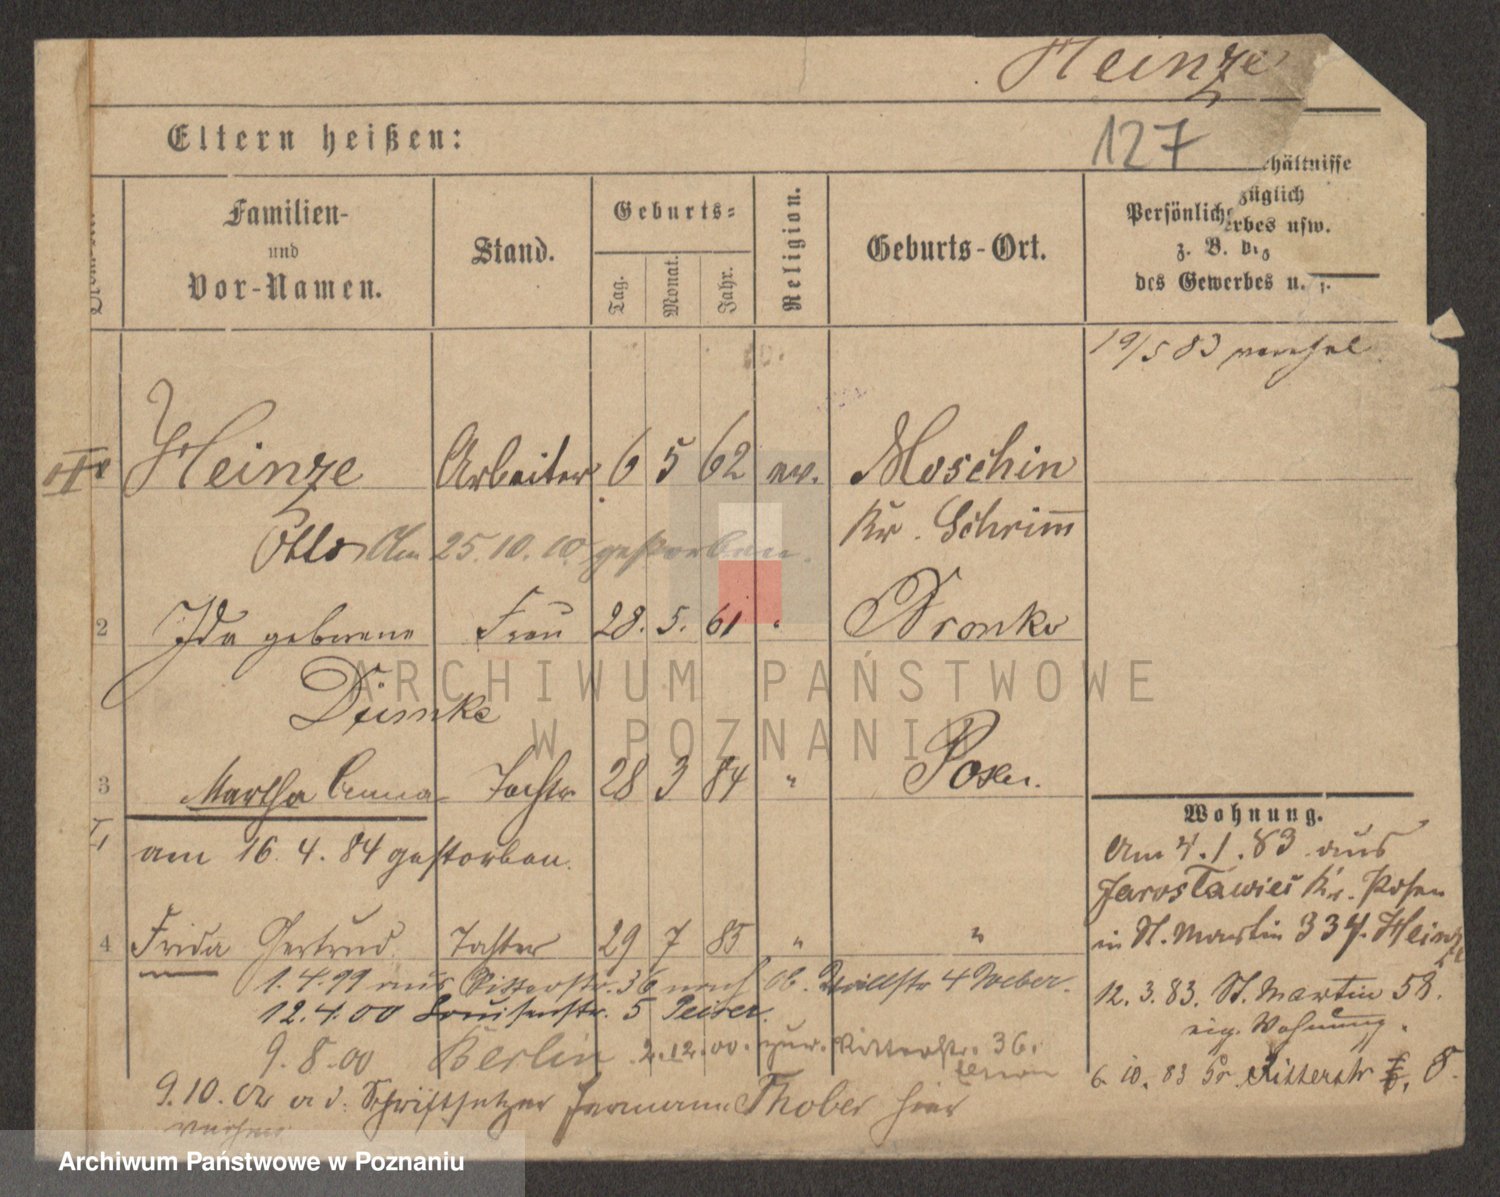 Heinze
127
Eltern heißen:
Familien-
und
Vor-Namen.
Stand.
Geburts-
Tag.
Monat.
Jahr.
Religion.
Geburts-Ort.
Persönliche
z. B.
des Gewerbes u.
hältnisse
züglich
erbes usw.
19/5 83
Heinze Arbeiter 6 5 62 ev. Moschin
Otto Am 25.10.00 gestorben. Kr. Schrimm
2 Ida geborene Frau 28. 5. 61 " Dronke
Dümke
3 Martha Anna Tochter 28 3 84 " Posen.
am 16. 4. 84 gestorben.
4 Frida Gertrud Tochter 29 7 85 " "
1.4.99 aus Ritterstr. 36 nach Ob. Wallstr 4 Weber.
12.4.00 Louisenstr. 5 Peiser.
9.8.00 Berlin 2.12.00. zur. Ritterstr. 36.
9.10.02 a d. Schriftsetzer Hermann Thober hier
Wohnung.
Am 4.1.83 aus
Jaroslawiec Kr. Posen
in St. Martin 334. Heinze
12.3.83. St. Martin 58.
eig. Wohnung.
6.10.83 Gr Ritterstr 8.
ARCHIWUM PAŃSTWOWE
W POZNANIU
Archiwum Państwowe w Poznaniu